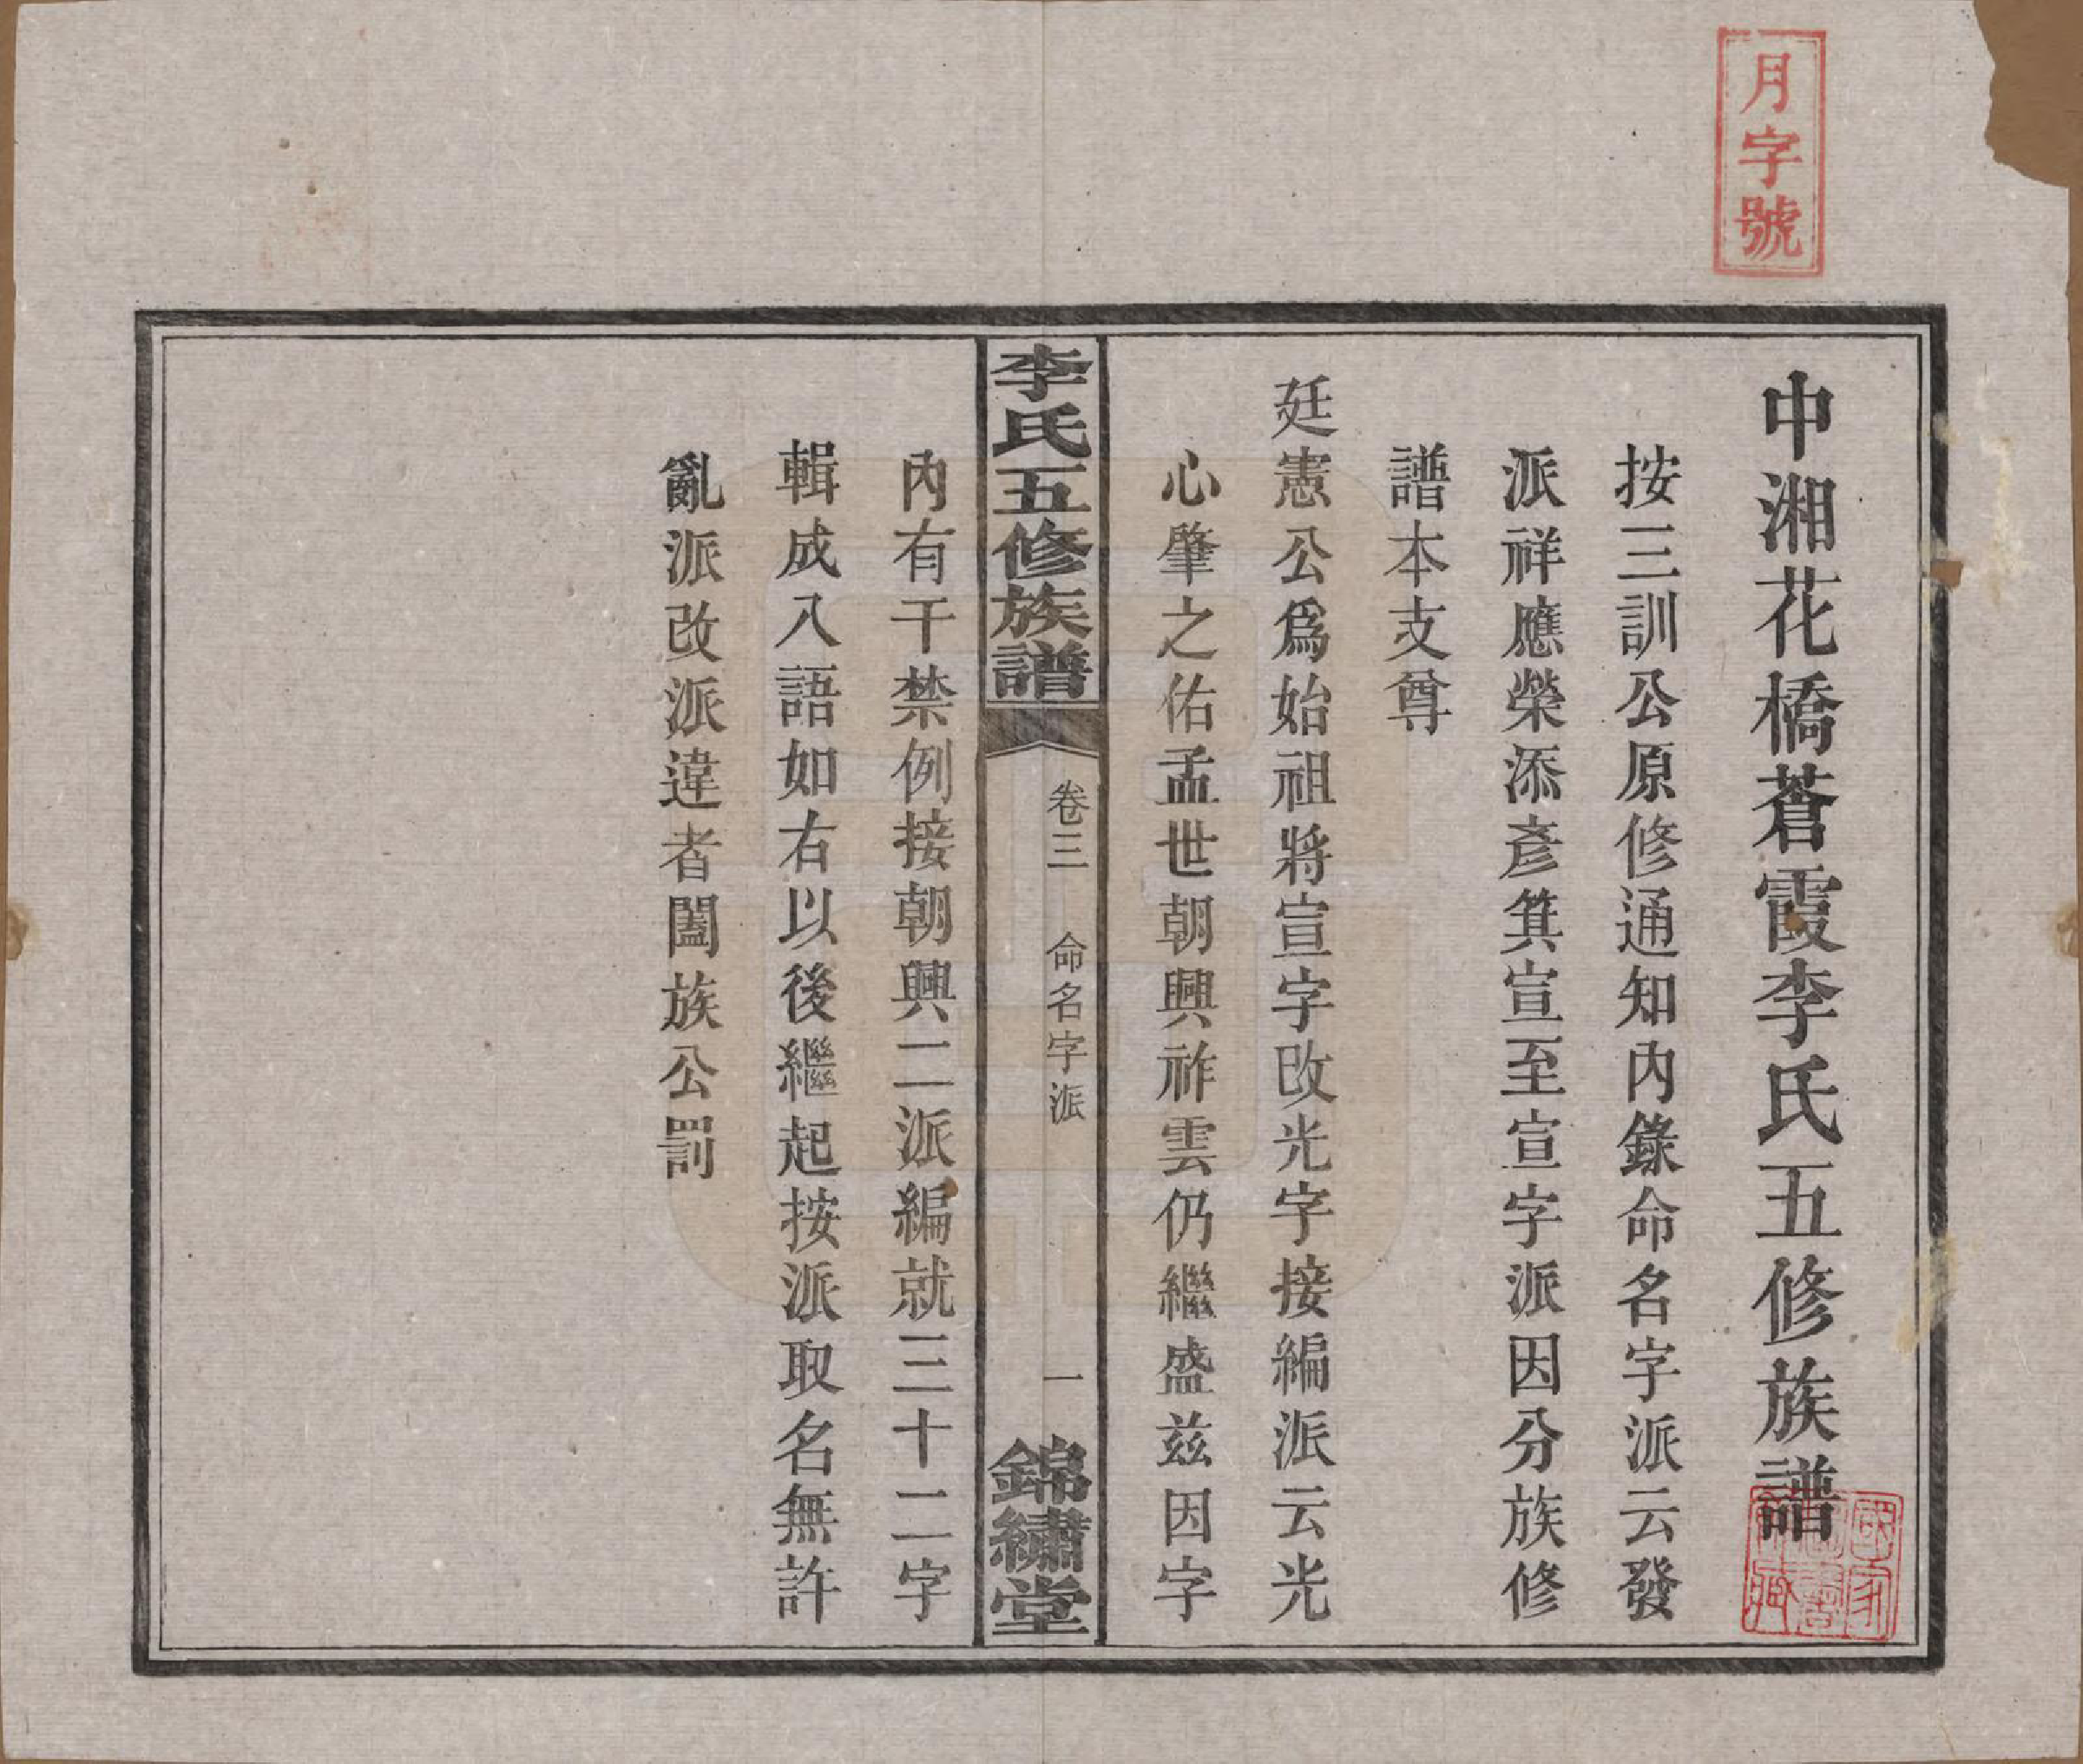 月字號
中湘花橋蒼霞李氏五修族譜
按三訓公原修通知內錄命名字派云發
派祥應榮添彥箕宣至宣字派因分族修
譜本支尊
廷憲公爲始祖將宣字改光字接編派云光
心肇之佑孟世朝興祚雲仍繼盛兹因字
李氏五修族譜
卷三 命名字派 一
錦繡堂
內有干禁例接朝興二派編就三十二字
輯成八語如右以後繼起按派取名無許
亂派改派違者闔族公罰